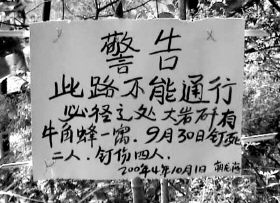 警告
此路不能通行
必径之处大岩矸有
牛角蜂一窝．9月30日钉死
二人．钉伤四人．
2004年10月1日